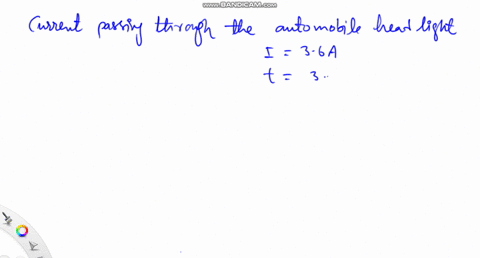 www.BANDICAM.com
Current passing through the automobile head light
I = 3.6A
t = 3.